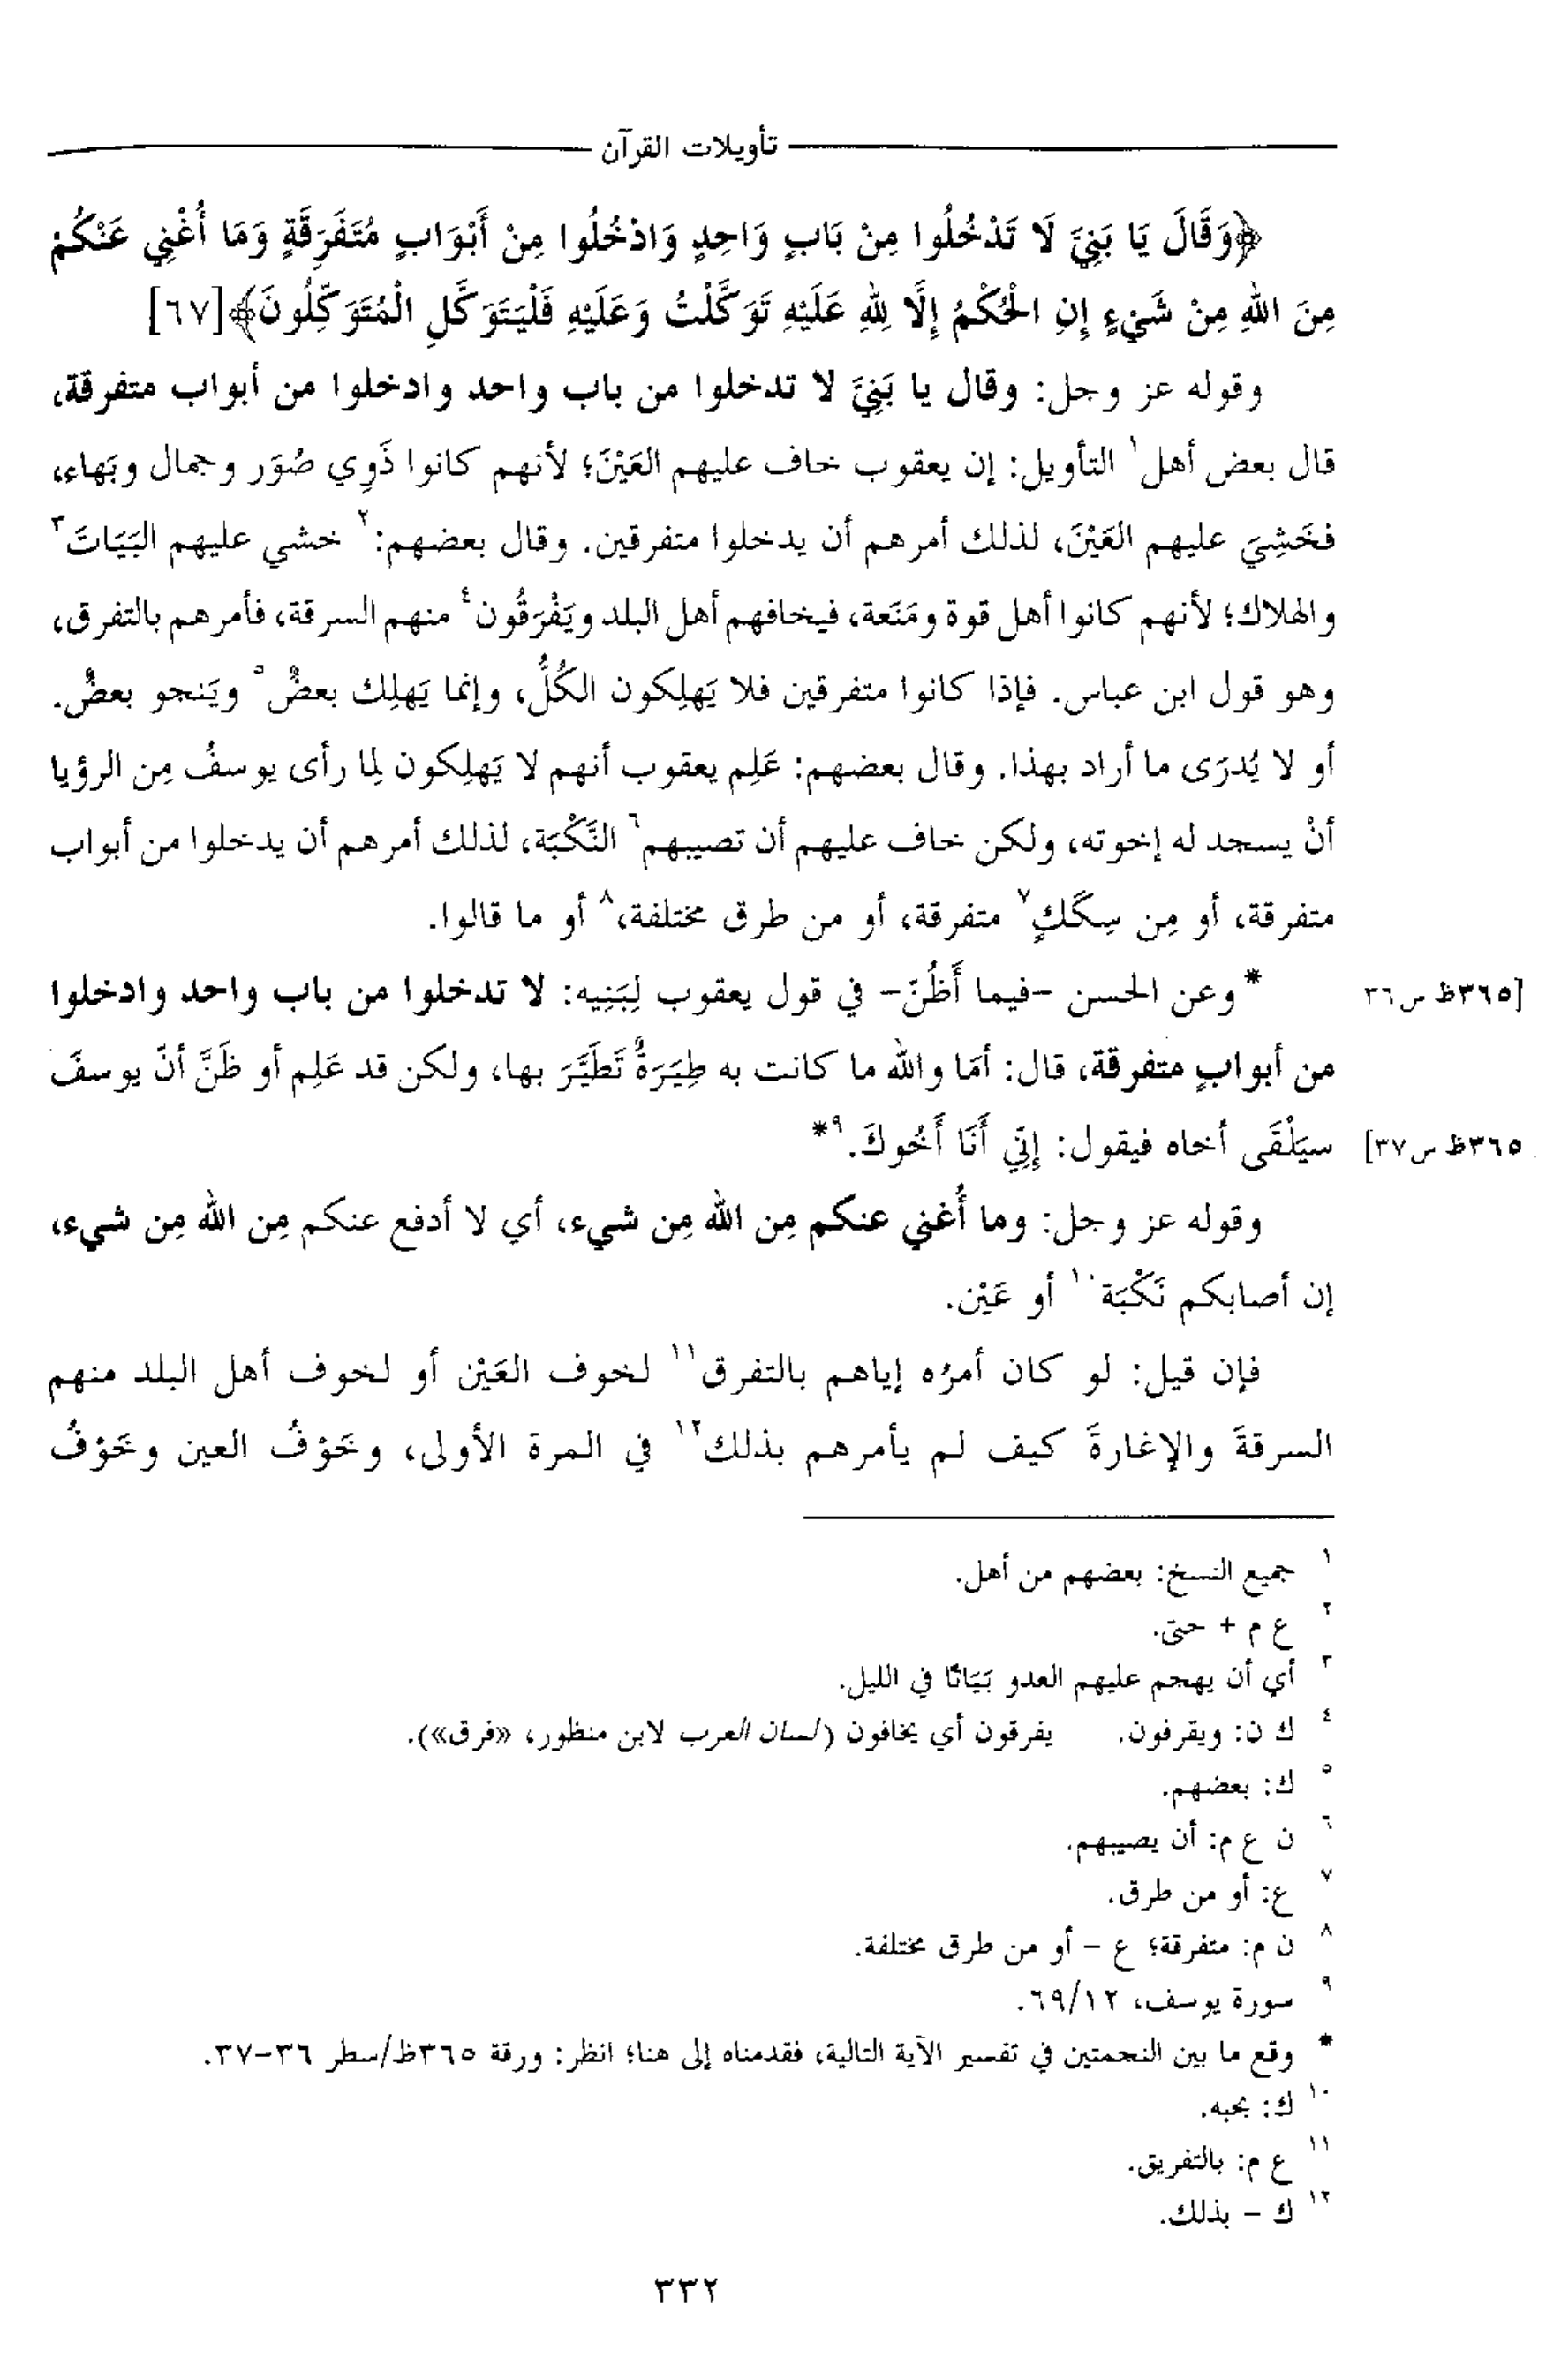 تأويلات القرآن
﴿وَقَالَ يَا بَنِيَّ لَا تَدْخُلُوا مِنْ بَابٍ وَاحِدٍ وَادْخُلُوا مِنْ أَبْوَابٍ مُتَفَرِّقَةٍ وَمَا أُغْنِي عَنْكُمْ
مِنَ اللهِ مِنْ شَيْءٍ إِنِ الْحُكْمُ إِلَّا لِلهِ عَلَيْهِ تَوَكَّلْتُ وَعَلَيْهِ فَلْيَتَوَكَّلِ الْمُتَوَكِّلُونَ﴾[٦٧]
وقوله عز وجل: وقال يا بَنِيَّ لا تدخلوا من باب واحد وادخلوا من أبواب متفرقة،
قال بعض أهل١ التأويل: إن يعقوب خاف عليهم العَيْنَ؛ لأنهم كانوا ذَوِي صُوَر وجمال وبَهاء،
فخَشِيَ عليهم العَيْنَ، لذلك أمرهم أن يدخلوا متفرقين. وقال بعضهم:٢ خشي عليهم البَيَاتَ٣
والهلاك؛ لأنهم كانوا أهل قوة ومَنَعة، فيخافهم أهل البلد ويَفْرَقُون٤ منهم السرقة، فأمرهم بالتفرق،
وهو قول ابن عباس. فإذا كانوا متفرقين فلا يَهلِكون الكُلُّ، وإنما يَهلِك بعضٌ٥ ويَنجو بعضٌ.
أو لا يُدرَى ما أراد بهذا. وقال بعضهم: عَلِم يعقوب أنهم لا يَهلِكون لِما رأى يوسفُ مِن الرؤيا
أنْ يسجد له إخوته، ولكن خاف عليهم أن تصيبهم٦ النَّكْبَة، لذلك أمرهم أن يدخلوا من أبواب
متفرقة، أو مِن سِكَكٍ٧ متفرقة، أو من طرق مختلفة،٨ أو ما قالوا.
*وعن الحسن -فيما أَظُنّ- في قول يعقوب لِبَنِيه: لا تدخلوا من باب واحد وادخلوا
[٣٦٥ظ س٣٦
من أبوابٍ متفرقة، قال: أمَا والله ما كانت به طِيَرَةٌ تَطَيَّرَ بها، ولكن قد عَلِم أو ظَنَّ أنّ يوسفَ
سيَلْقَى أخاه فيقول: إِنِّي أَنَا أَخُوكَ.٩*
٣٦٥ظ س٣٧]
وقوله عز وجل: وما أُغني عنكم مِن الله مِن شيء، أي لا أدفع عنكم مِن الله مِن شيء،
إن أصابكم نَكْبَة١٠ أو عَيْن.
فإن قيل: لو كان أمرُه إياهم بالتفرق١١ لخوف العَيْن أو لخوف أهل البلد منهم
السرقةَ والإغارةَ كيف لم يأمرهم بذلك١٢ في المرة الأولى، وخَوْفُ العين وخَوْفُ
١ جميع النسخ: بعضهم من أهل.
٢ ع م + حتى.
٣ أي أن يهجم عليهم العدو بَيَاتًا في الليل.
٤ ك ن: ويقرفون. يفرقون أي يخافون (لسان العرب لابن منظور، «فرق»).
٥ ك: بعضهم.
٦ ن ع م: أن يصيبهم.
٧ ع: أو من طرق.
٨ ن م: متفرقة؛ ع – أو من طرق مختلفة.
٩ سورة يوسف، ٦٩/١٢.
* وقع ما بين النجمتين في تفسير الآية التالية، فقدمناه إلى هنا؛ انظر: ورقة ٣٦٥ظ/سطر ٣٦-٣٧.
١٠ ك: بحبه.
١١ ع م: بالتفريق.
١٢ ك – بذلك.
٣٣٢